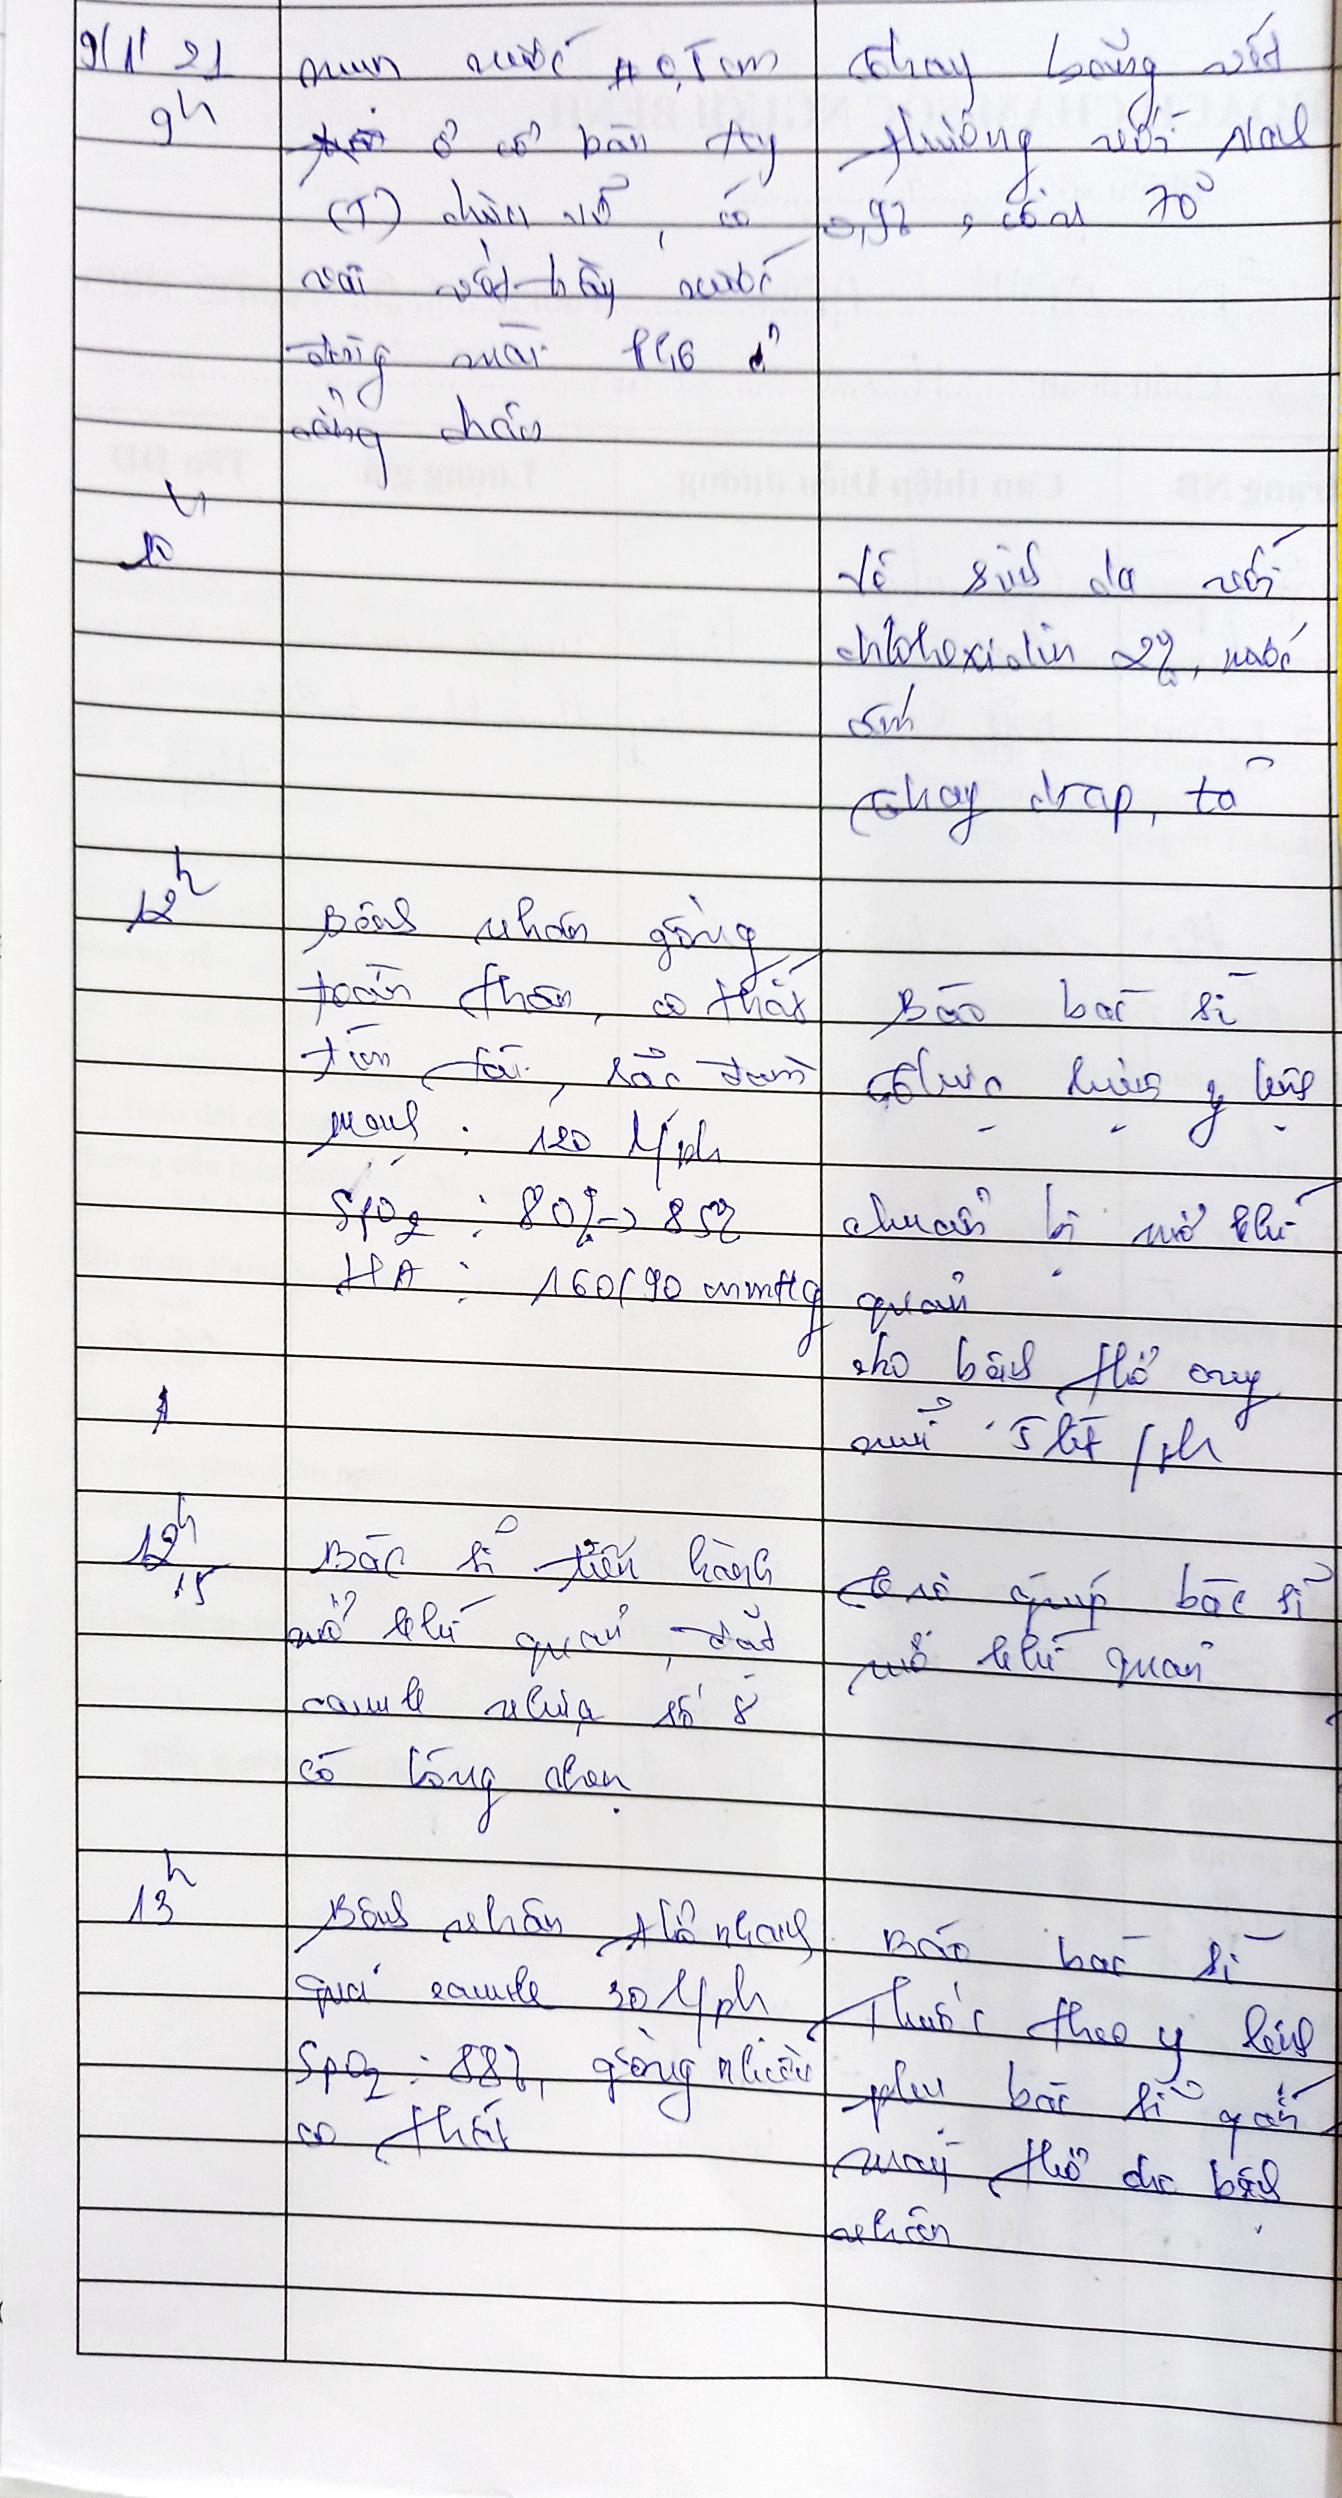 9/1/21
9h
mụn nước # 0,5cm
ở cổ bàn tay
(T) chưa vỡ, có
vài vết trầy xước
đóng mài ở
cẳng chân
thay băng vết
thương với NaCl
0,9%, cồn 70°
10h
Vệ sinh da với
chlohexidin 2%, nước
ấm
thay drap, tã
12h
Bệnh nhân gồng
toàn thân, co thắt
tím tái, sặc đàm
Mạch : 120 l/ph
SpO2 : 80% -> 85%
HA : 160/90 mmHg
Báo bác sĩ
Thực hiện y lệnh
chuẩn bị mở khí
quản
cho bệnh thở oxy
mũi 5 lít/ph
12h15
Bác sĩ tiến hành
mở khí quản, đặt
canule nhựa số 8
có bóng chèn
trợ giúp bác sĩ
mở khí quản
13h
Bệnh nhân thở nhanh
qua canule 30 l/ph
SpO2 : 88%, gồng nhiều
co thắt
Báo bác sĩ
Thuốc theo y lệnh
phụ bác sĩ gắn
máy thở cho bệnh
nhân